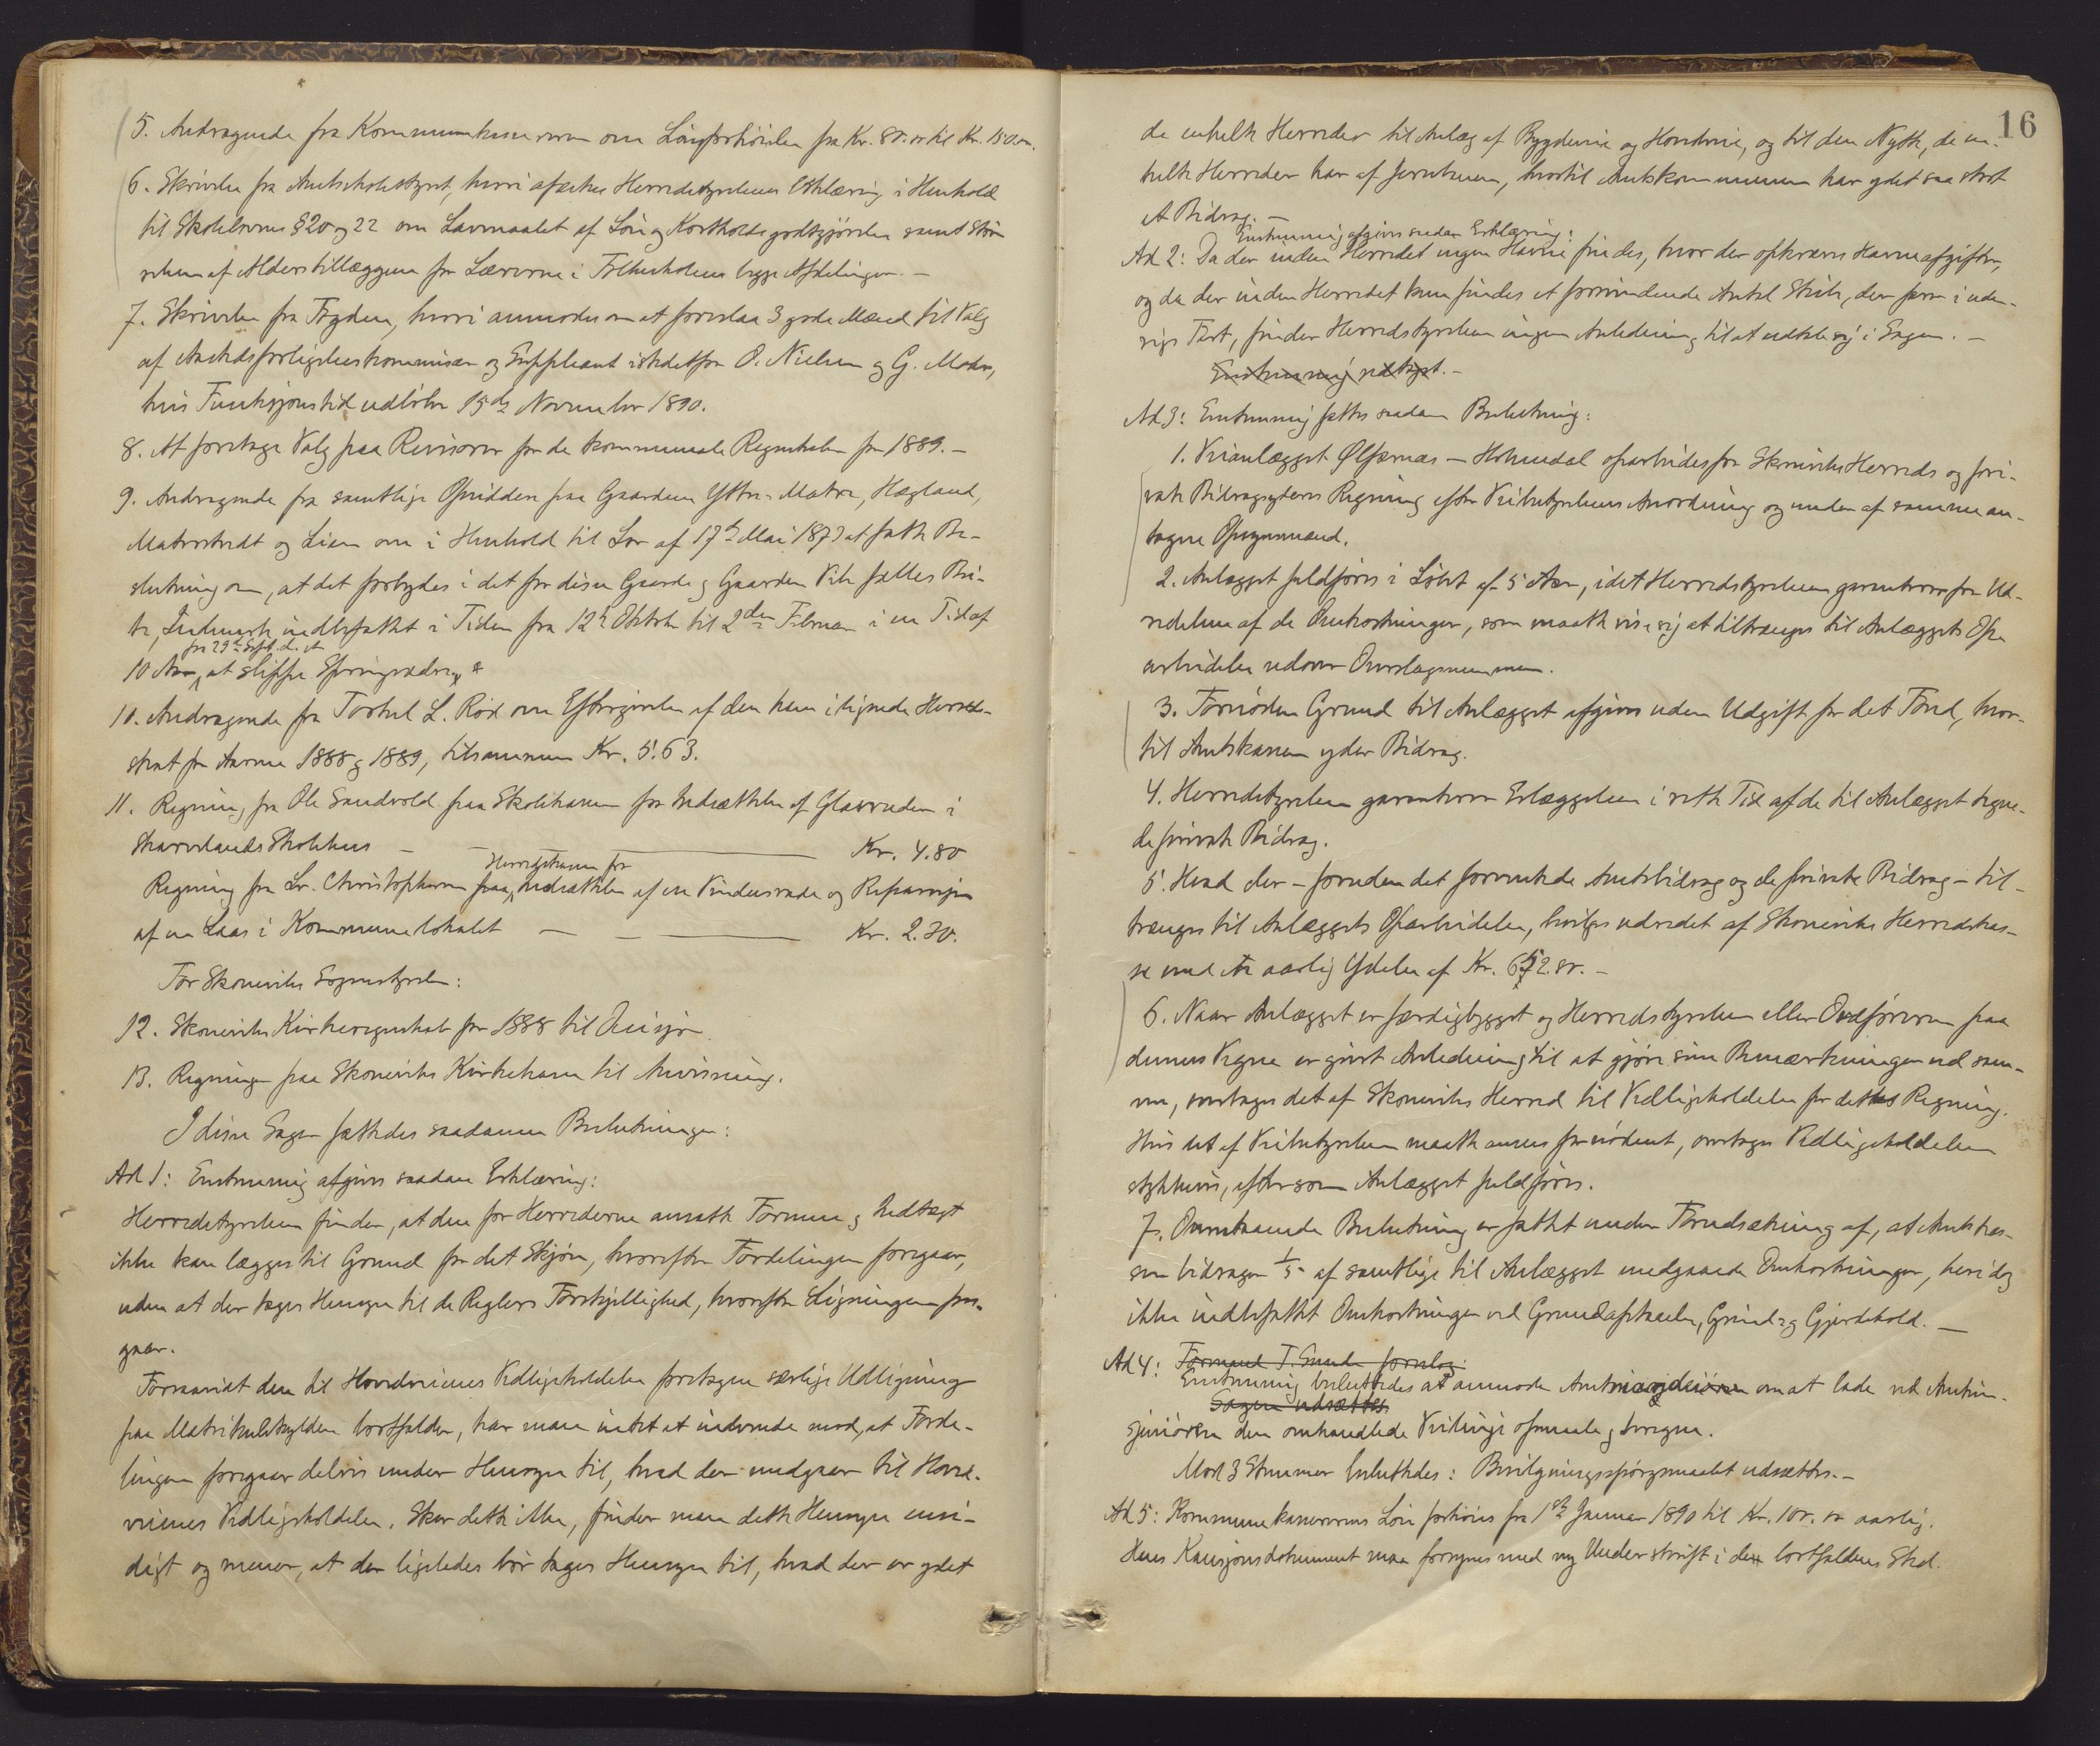 5. Andragende fra Kommunekassereren om Lønsforhøielse fra Kr. 80.00 til Kr. 150.00.
6. Skrivelse fra Amtsskolestyret, hvori afæskes Herredsstyrelsens Erklæring i Henhold
til Skolelovens § 20 og 22 om Lavmaalet af Løn og Kostholdsgodtgjørelse samt Stør-
relsen af Alderstillæggene for Lærerne i Folkeskolens begge Afdelinger. —
7. Skrivelse fra Fogden, hvori anmodes om at foreslaa 3 gode Mænd til Valg
af Amtsforligelseskommissær og Suppleant istedetfor O. Nielsen og G. Matre,
hvis Funktionstid udløber 15de November 1890.
8. At foretage Valg paa Revisorer for de kommunale Regnskaber for 1889. —
9. Andragende fra samtlige Opsiddere paa Gaardene Yttre-Matre, Hægland,
Matrestvedt og Lien om i Henhold til Lov af 17de Mai 1873 at fatte Be-
slutning om, at det forbydes i det for disse Gaarde og Gaarden Vik fælles Bei-
te, Indmark indbefattet i Tiden fra 12te Oktober til 2den Februar i en Tid af
fra 29de Septbr. d. A.
10 Aar, at slippe Springvædre.
10. Andragende fra Torkel L. Rød om Eftergivelse af den ham ilignede Herreds-
skat for Aarene 1888 og 1889, tilsammen Kr. 5.63.
11. Regning fra Ole Sandvold paa Skolekassen for Indsættelse af Glasruder i
Skarvelands Skolehus — Kr. 4.80
Herredskassen for
Regning fra Lr. Christophersen paa Indsættelse af en Vinduesrude og Reparasjon
af en Laas i Kommunelokalet — — Kr. 2.70.
For Skonevik Sognestyrelse:
12. Skoneviks Kirkeregnskab for 1888 til Decisjon
13. Regninger paa Skoneviks Kirkekasse til Anvisning.
I disse Sager fattedes saadanne Beslutninger:
Ad 1: Enstemmig afgives saadan Erklæring:
Herredsstyrelsen finder, at den for Herrederne ansatte Formue og Indtægt
ikke kan lægges til Grund for det Skjøn, hvorefter Fordelingen foregaar,
uden at der tages Hensyn til de Reglers Forskjellighed, hvorefter Ligningen fore-
gaar.
Forsaavidt den til Hovedveienes Vedligeholdelse foretagne særlige Udligning
paa Matrikulskylden bortfalder, har man intet at indvende mod, at Forde-
lingen foregaar delvis under Hensyn til, hvad der medgaar til Hoved-
veienes Vedligeholdelse. Sker dette ikke, finder man dette Hensyn ensi-
digt og mener, at der ligeledes bør tages Hensyn til, hvad der er ydet
16
de enkelte Herreder til Anlæg af Bygdeveie og Hovedveie, og til den Nytte, de en-
kelte Herreder har af Jernbanen, hvortil Amtskommunen har ydet saa stort
et Bidrag. —
Enstemmig afgives saadan Erklæring:
Ad 2: Da der inden Herredet ingen Havne findes, hvor der opkræves Havneafgifter,
og da der inden Herredet kun findes et forsvindende Antal Skibe, der farer i uden-
rigs Fart, finder Herredsstyrelsen ingen Anledning til at udtale sig i Sagen. —
Enstemmig vedtaget. —
Ad 3: Enstemmig fattes saadan Beslutning:
1. Veianlægget Ølfærnæs — Holmedal oparbeides for Skoneviks Herreds og pri-
vate Bidragsyderes Regning efter Veibestyrelsens Anordning og under af samme an-
tagne Opsynsmænd.
2. Anlægget fuldføres i Løbet af 5 Aar, idet Herredsstyrelsen garanterer for Ud-
redelsen af de Omkostninger, som maatte vise sig at tiltrænges til Anlæggets Op-
arbeidelse udover Overslagssummen.
3. Fornøden Grund til Anlægget afgives uden Udgift for det Fond, hvor-
til Amtskassen yder Bidrag.
4. Herredsstyrelsen garanterer Erlæggelsen i rette Tid af de til Anlægget tegne-
de private Bidrag.
5. Hvad der — foruden det forventede Amtsbidrag og de private Bidrag — til-
trænges til Anlæggets Oparbeidelse, bevilges udredet af Skoneviks Herredskas-
se med en aarlig Ydelse af Kr. 652.80. —
6. Naar Anlægget er færdigbygget og Herredsstyrelsen eller Ordføreren paa
dennes Vegne er givet Anledning til at gjøre sine Bemærkninger ved sam-
me, overtages det af Skoneviks Herred til Vedligeholdelse for dettes Regning.
Hvis det af Veibestyrelsen maatte ansees fornødent, overtages Vedligeholdelsen
stykkevis, eftersom Anlægget fuldføres.
7. Ovenstaaende Beslutning er fattet under Forudsætning af, at Amtskas-
sen bidrager 1/5 af samtlige til Anlægget medgaaende Omkostninger, heri dog
ikke indbefattet Omkostninger ved Grundafstaaelse, Grind- og Gjerdehold. —
Ad 4: Formand T. Sunde foreslog:
Enstemmig besluttedes at anmode Amtmanden om at lade ved Amtsin-
Sagen udsættes.
sjeniøren den omhandlede Veilinje opmaale og beregne.
Mod 3 Stemmer besluttedes: Bevilgningsspørgsmaalet udsættes. —
Ad 5: Kommunekassererens Løn forhøies fra 1ste Januar 1890 til Kr. 100.00 aarlig.
Hans Kausjonsdokument maa fornyes med ny Underskrift i den bortfaldnes Sted.